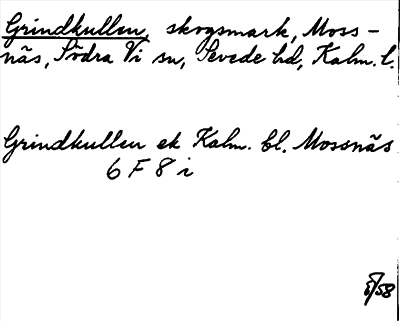 Grindkullen, skogsmark, Moss-
näs, Södra Vi sn, Sevede hd, Kalm. l.
Grindkullen ek Kalm. bl. Mossnäs
6 F 8 i